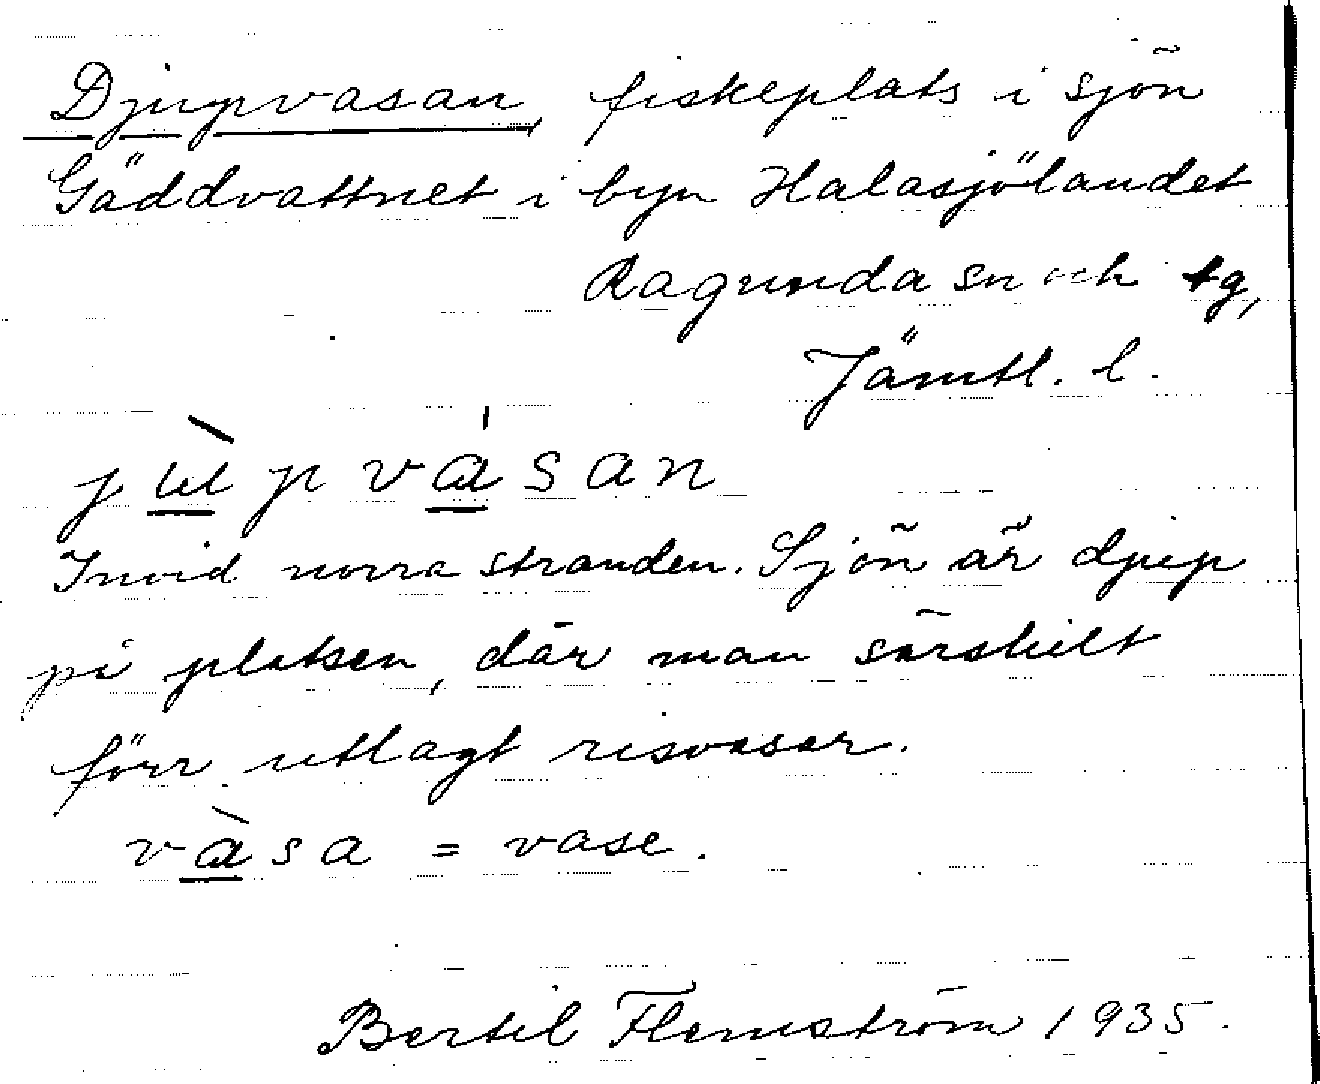 Djupvasan, fiskeplats i sjön
Gäddvattnet i byn Halasjölandet
Ragunda sn och tg,
Jämtl. l.
jùpvásan
Invid norra stranden. Sjön är djup
på platsen, där man särskilt
förr utlagt risvasar.
vàsa = vase.
Bertil Flemström 1935.